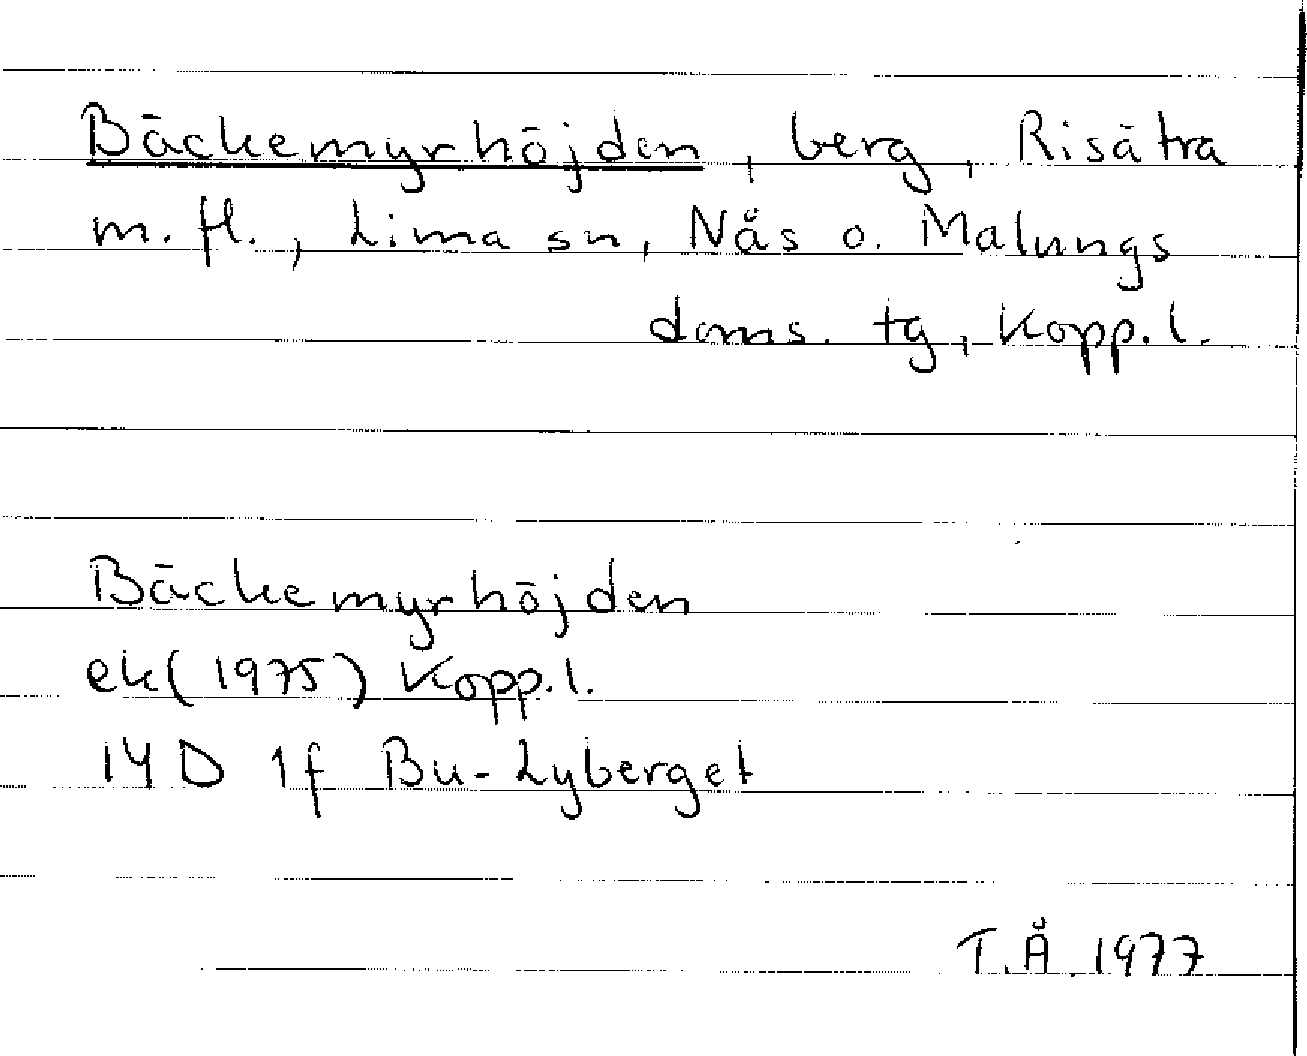 Bäckemyrhöjden, berg, Risätra
m.fl., Lima sn, Nås o. Malungs
doms. tg, Kopp.l.
Bäckemyrhöjden
ek(1975) Kopp.l.
14D 1f Bu-Lyberget
T.Å. 1977